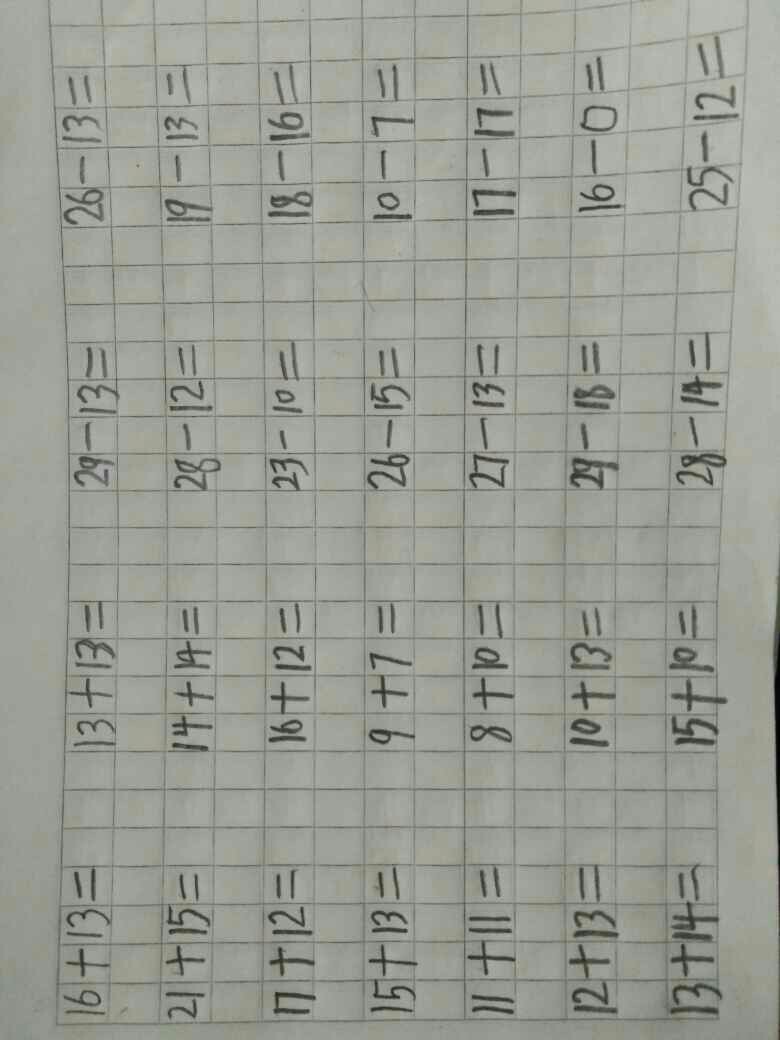 16+13= 13+13= 29-13= 26-13=
21+15= 14+14= 28-12= 19-13=
17+12= 16+12= 23-10= 18-16=
15+13= 9+7= 26-15= 10-7=
11+11= 8+10= 27-13= 17-17=
12+13= 10+13= 29-18= 16-0=
13+14= 15+10= 28-14= 25-12=